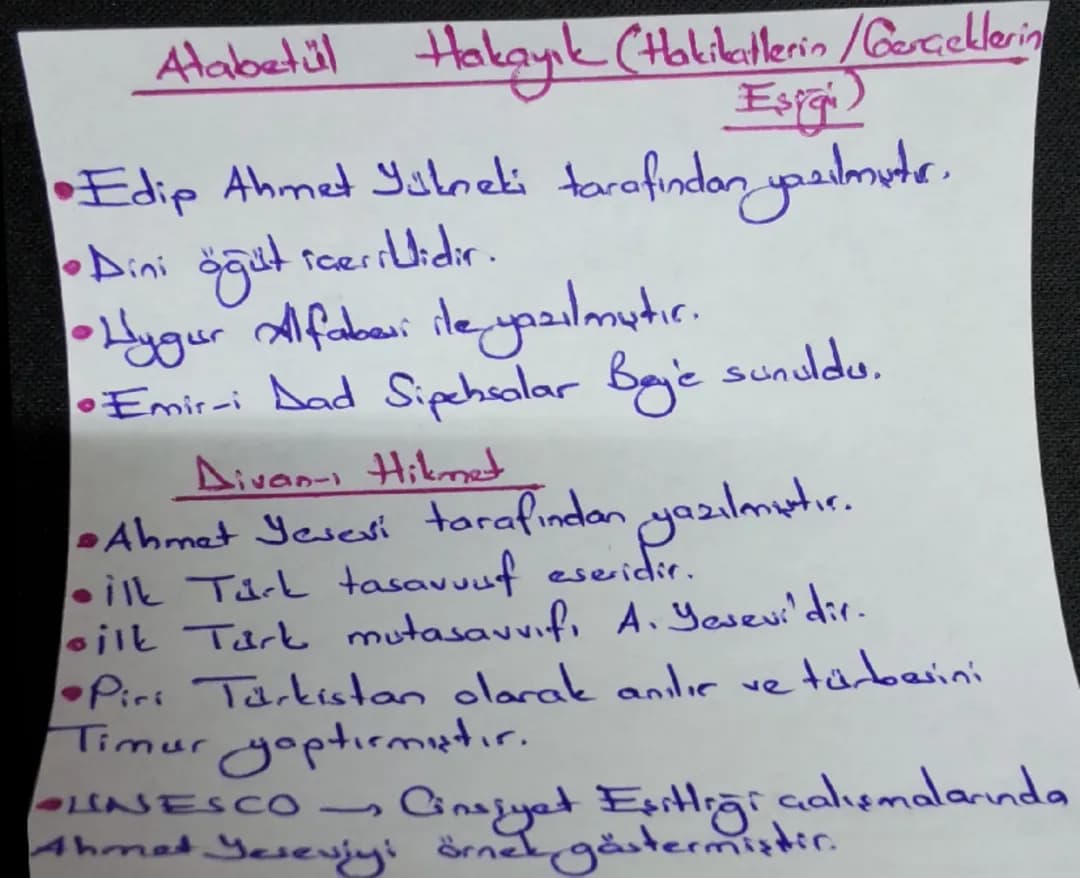 Atabetül Hakayık (Hakikatlerin / Gerçeklerin
Eşiği)
• Edip Ahmet Yükneki tarafından yazılmıştır.
• Dini öğüt içeriklidir.
• Uygur Alfabesi ile yazılmıştır.
• Emir-i Dad Sipehsalar Bey'e sunuldu.
Divan-ı Hikmet
• Ahmet Yesevi tarafından yazılmıştır.
• ilk Türk tasavvuf eseridir.
• ilk Türk mutasavvıfı A. Yesevi'dir.
• Piri Türkistan olarak anılır ve türbesini
Timur yaptırmıştır.
• UNESCO → Cinsiyet Eşitliği çalışmalarında
Ahmet Yeseviyi örnek göstermiştir.